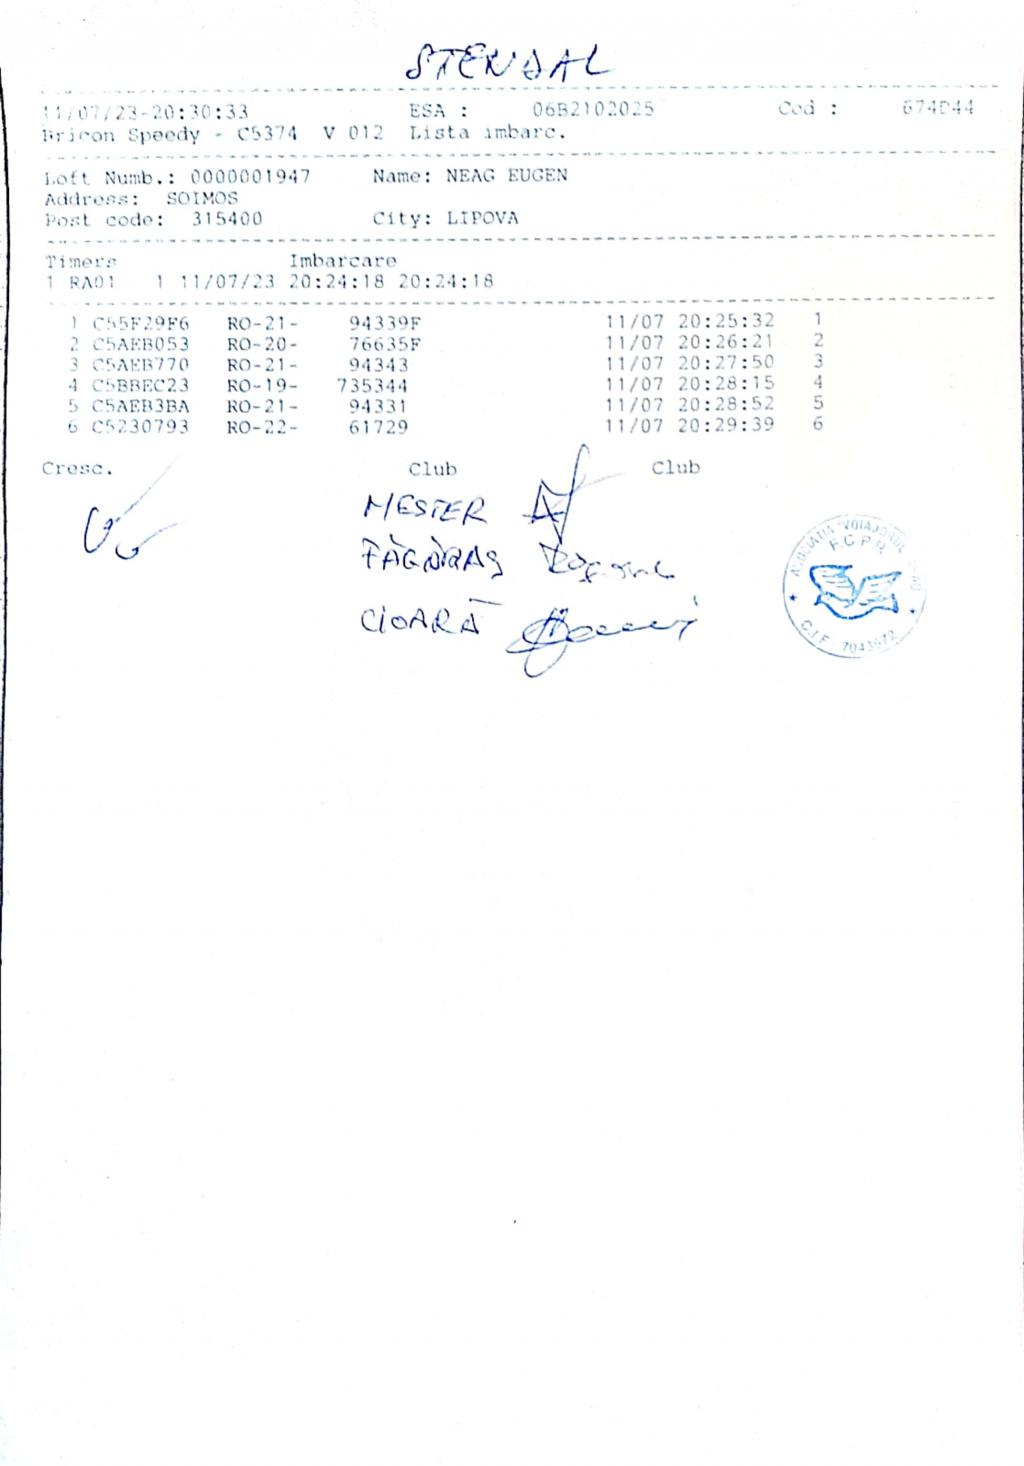 STENDAL
11/07/23-20:30:33 ESA : 06B2102025 Cod : 674D44
Bricon Speedy - C5374 V 012 Lista imbarc.
Loft Numb.: 0000001947 Name: NEAG EUGEN
Address: SOIMOS
Post code: 315400 City: LIPOVA
Timers Imbarcare
1 RA01 1 11/07/23 20:24:18 20:24:18
1 C55F29F6 RO-21- 94339F 11/07 20:25:32 1
2 C5AEB053 RO-20- 76635F 11/07 20:26:21 2
3 C5AEB770 RO-21- 94343 11/07 20:27:50 3
4 C5BBEC23 RO-19- 735344 11/07 20:28:15 4
5 C5AEB3BA RO-21- 94331 11/07 20:28:52 5
6 C5230793 RO-22- 61729 11/07 20:29:39 6
Cresc. Club Club
MESTER
FĂGĂRAȘ
CIOARĂ
ASOCIATIA "VOIAJORUL
F.C.P.R.
C.I.F. 7043972